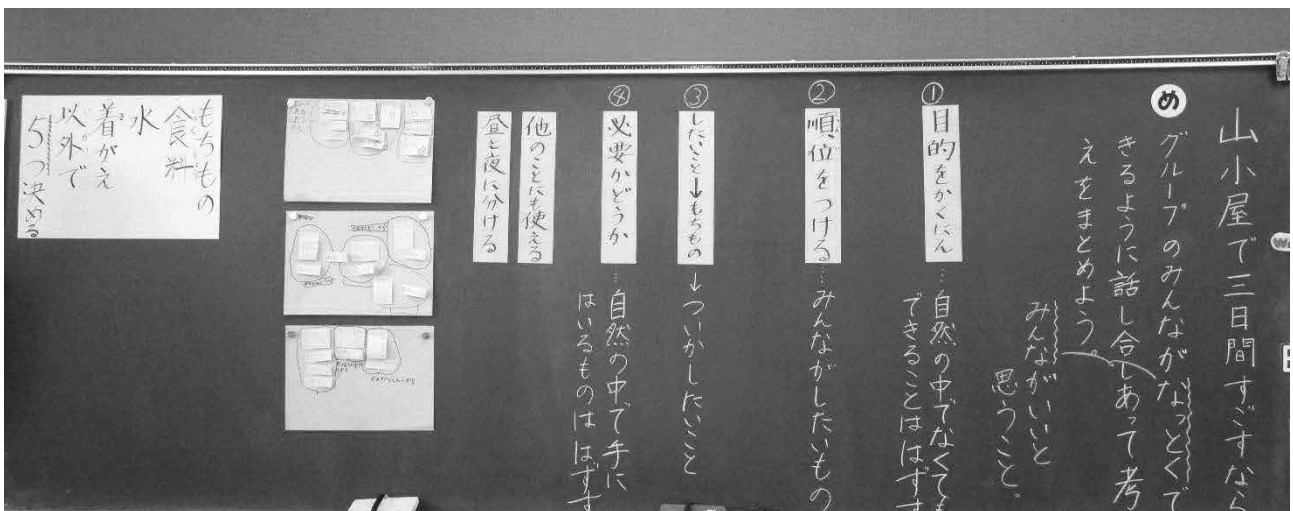 山小屋で三日間すごすなら
め
グループのみんながなっとくで
きるように話し合しあって考
えをまとめよう。
みんながいいと
思うこと。
① 目的をかくにん
…自然の中でなくても
できることははずす
② 順位をつける
…みんながしたいもの
③ したいこと→もちもの
→ついかしたいこと
④ 必要かどうか
…自然の中で手に
はいるものははずす
他のことにも使える
昼と夜に分ける
もちもの
食料
水
着がえ
以外で
5つ決める